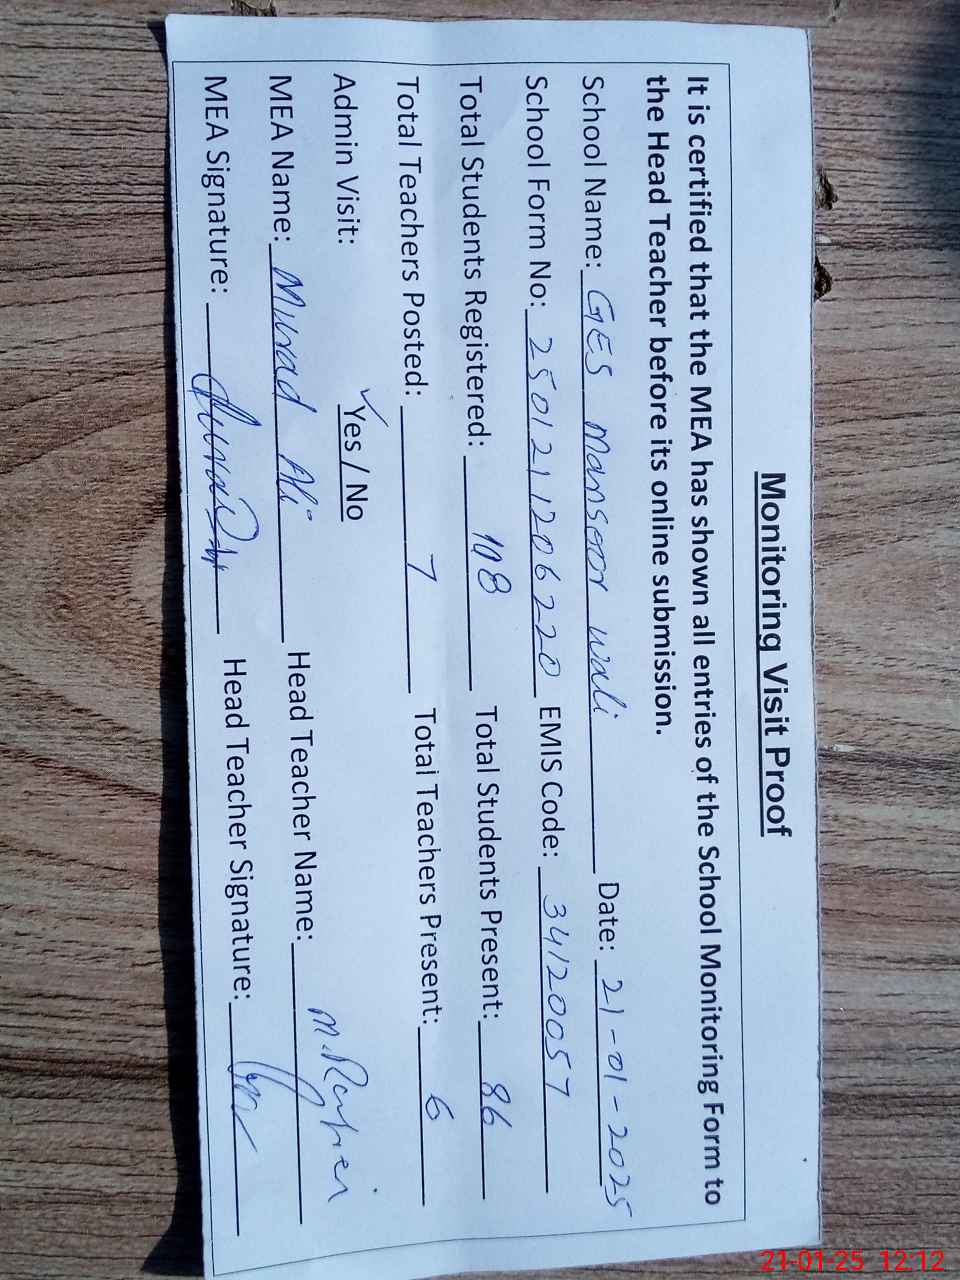 Monitoring Visit Proof
It is certified that the MEA has shown all entries of the School Monitoring Form to
the Head Teacher before its online submission.
School Name: GES Mansoor wali Date: 21-01-2025
School Form No: 2501211206220 EMIS Code: 34120057
Total Students Registered: 108 Total Students Present: 86
Total Teachers Posted: 7 Total Teachers Present: 6
Admin Visit: ✓Yes / No
MEA Name: Murad Ali Head Teacher Name: M.
MEA Signature: Head Teacher Signature:
21-01-25 12:12